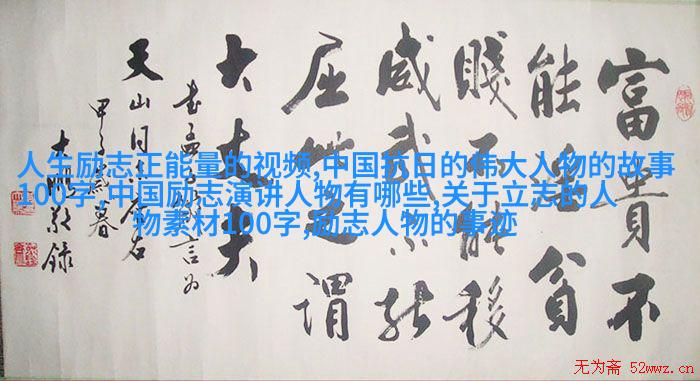 人生励志正能量的视频,中国抗日的伟大人物的故事
100字,中国励志演讲人物有哪些,关于立志的人
物素材100字,励志人物的事迹
富貴不
能淫貧
賤不能移
威武不能
屈此之謂
大丈夫
天山同志座右
甲子歲暮
敬錄
无为斋 52wwz.cn